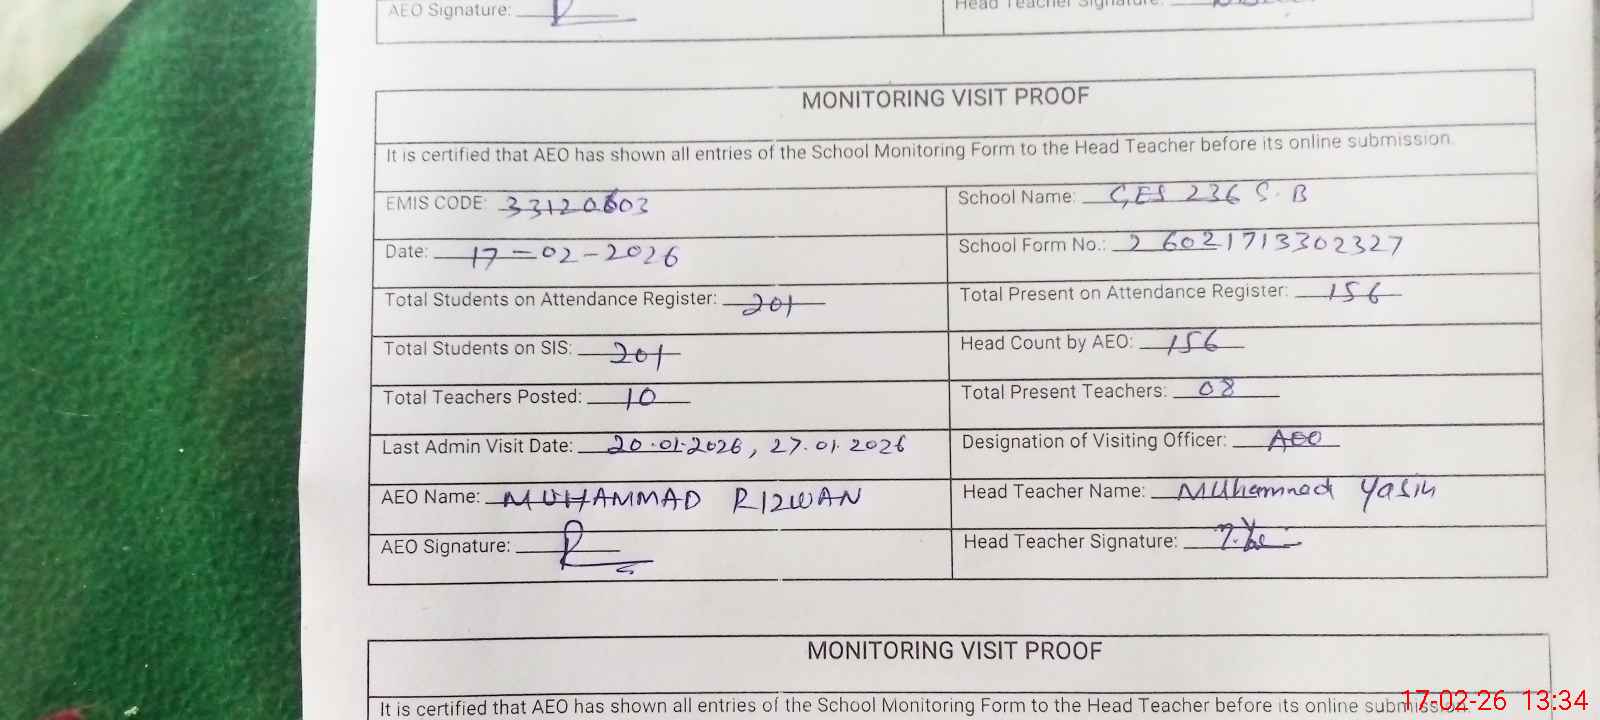 AEO Signature:
Head Teacher Signature:
MONITORING VISIT PROOF
It is certified that AEO has shown all entries of the School Monitoring Form to the Head Teacher before its online submission.
EMIS CODE: 33120603
School Name: GES 236 G.B
Date: 17-02-2026
School Form No.: 26021713302327
Total Students on Attendance Register: 201
Total Present on Attendance Register: 156
Total Students on SIS: 201
Head Count by AEO: 156
Total Teachers Posted: 10
Total Present Teachers: 08
Last Admin Visit Date: 20.01.2026, 27.01.2026
Designation of Visiting Officer: AEO
AEO Name: MUHAMMAD RIZWAN
Head Teacher Name: Muhammad Yasin
AEO Signature:
Head Teacher Signature:
MONITORING VISIT PROOF
It is certified that AEO has shown all entries of the School Monitoring Form to the Head Teacher before its online submission.
17-02-26 13:34